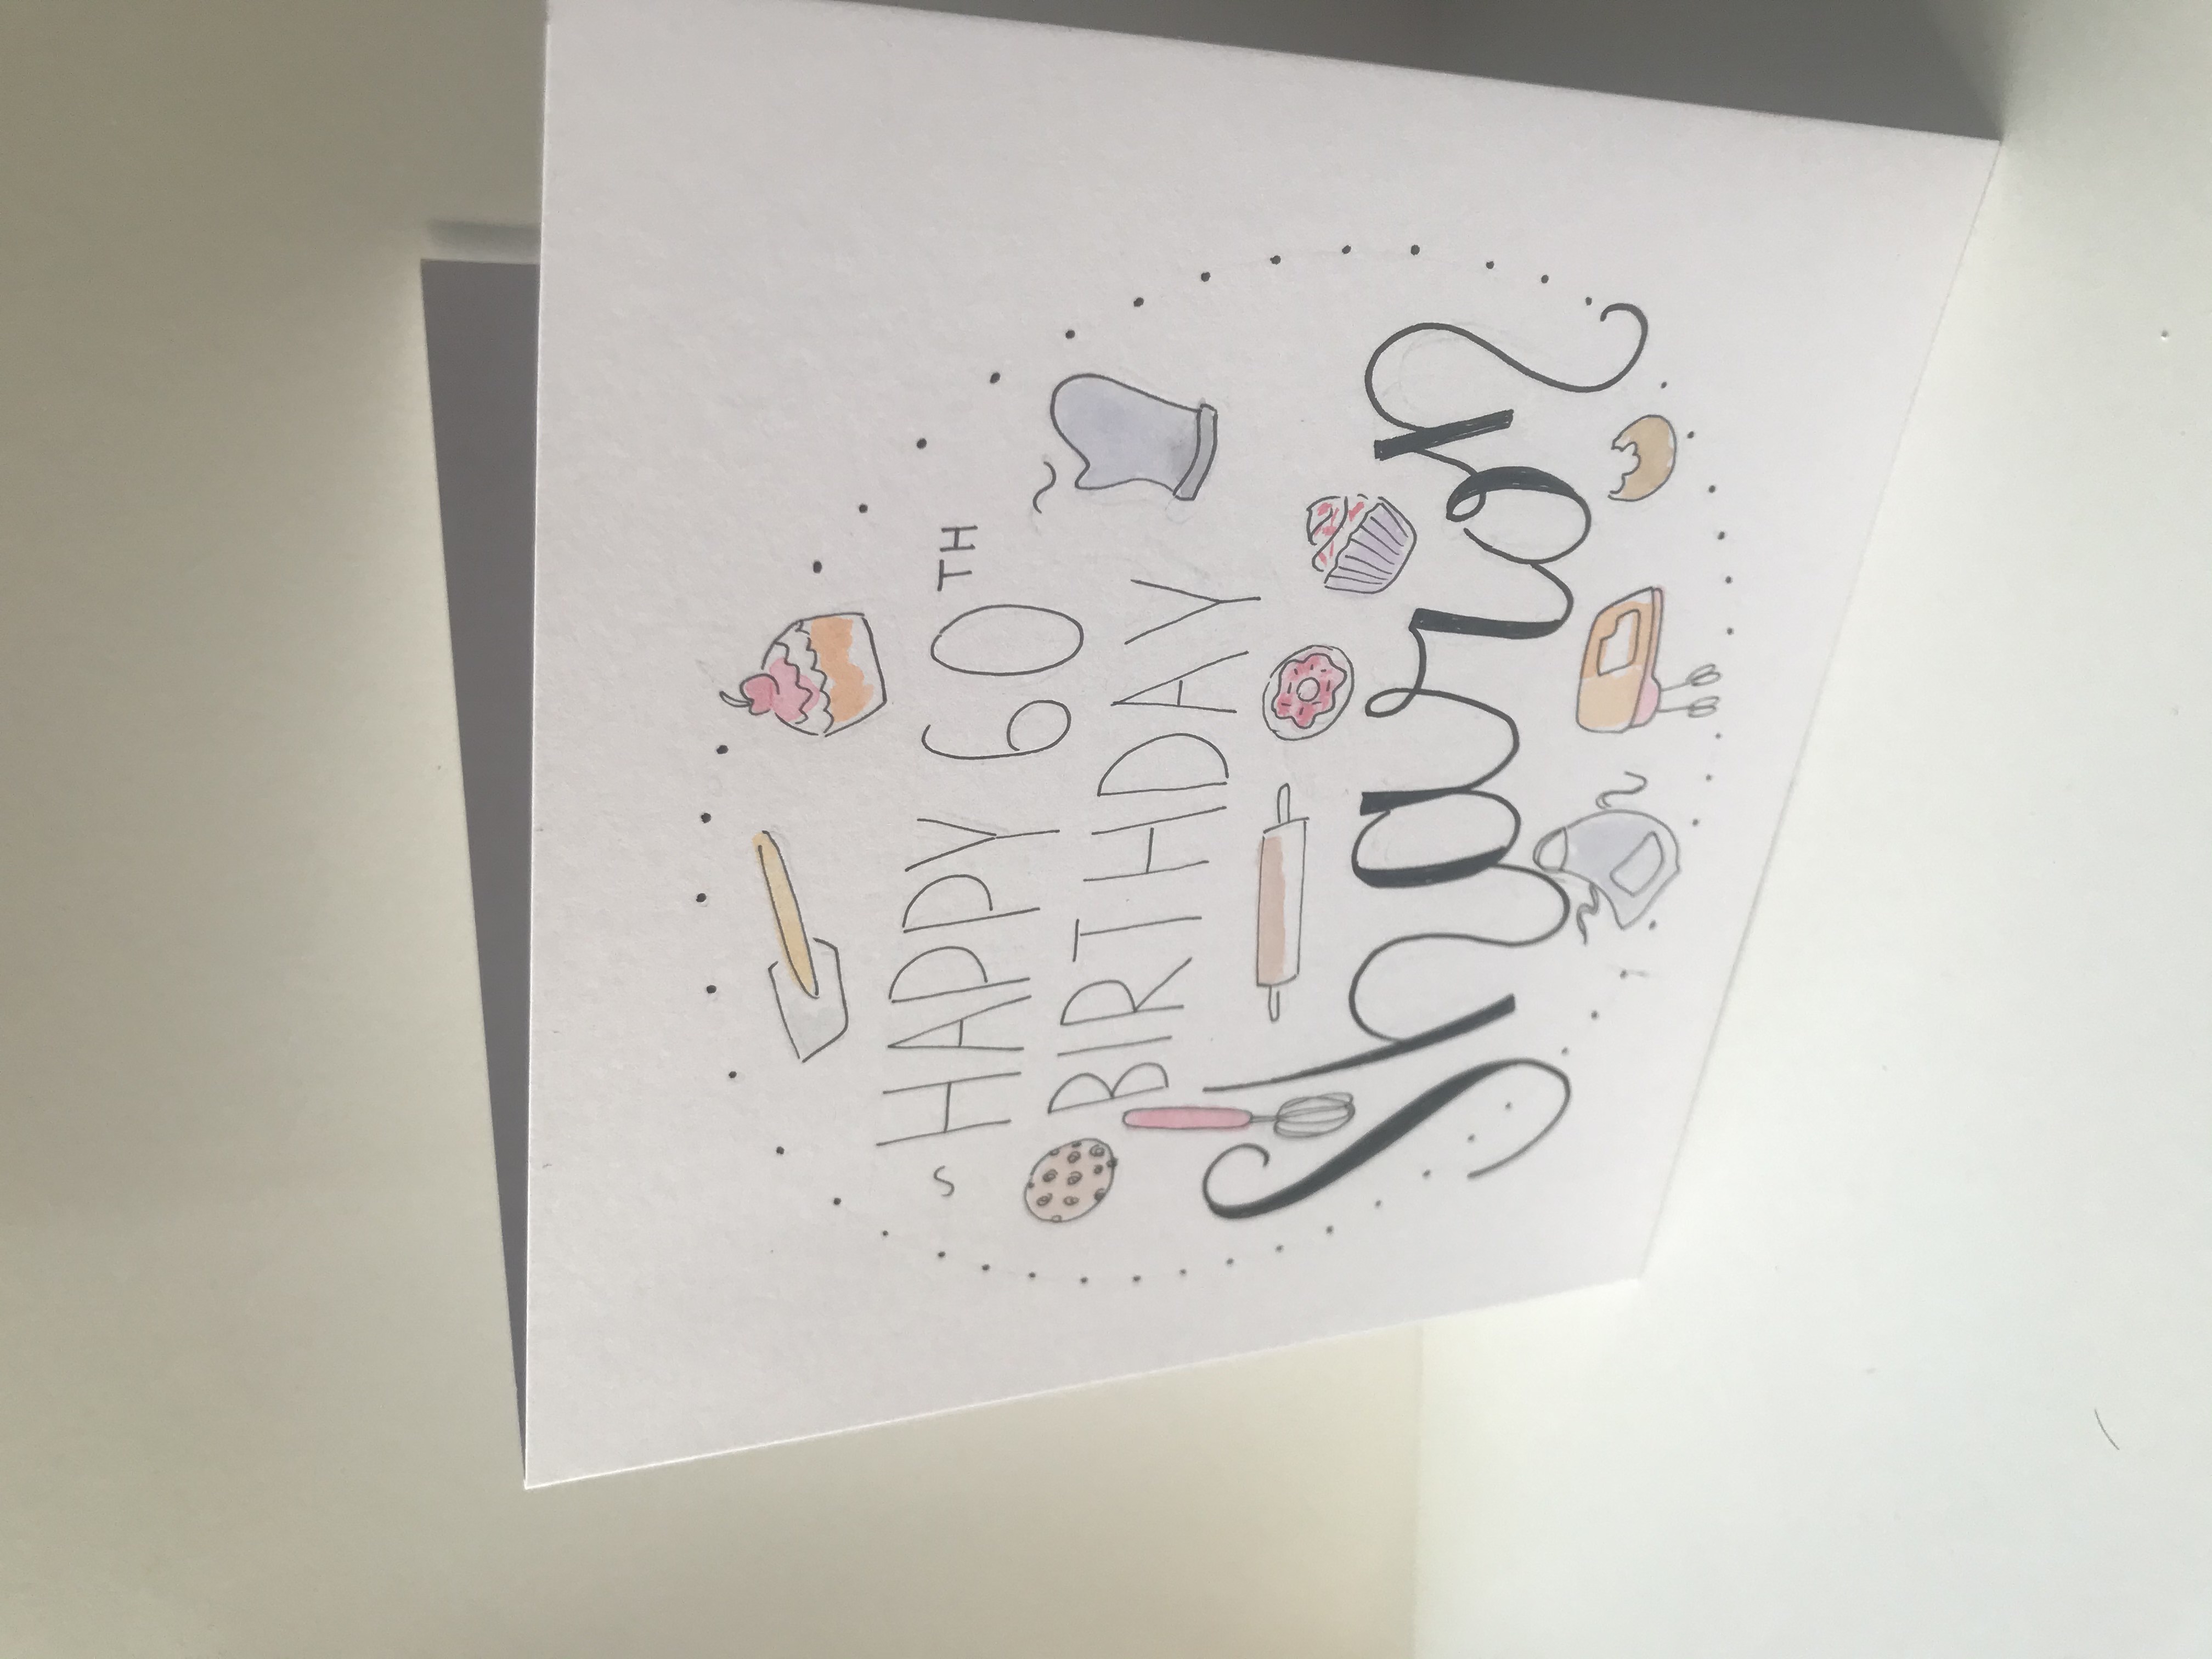 HAPPY 60TH
BIRTHDAY
Sharon